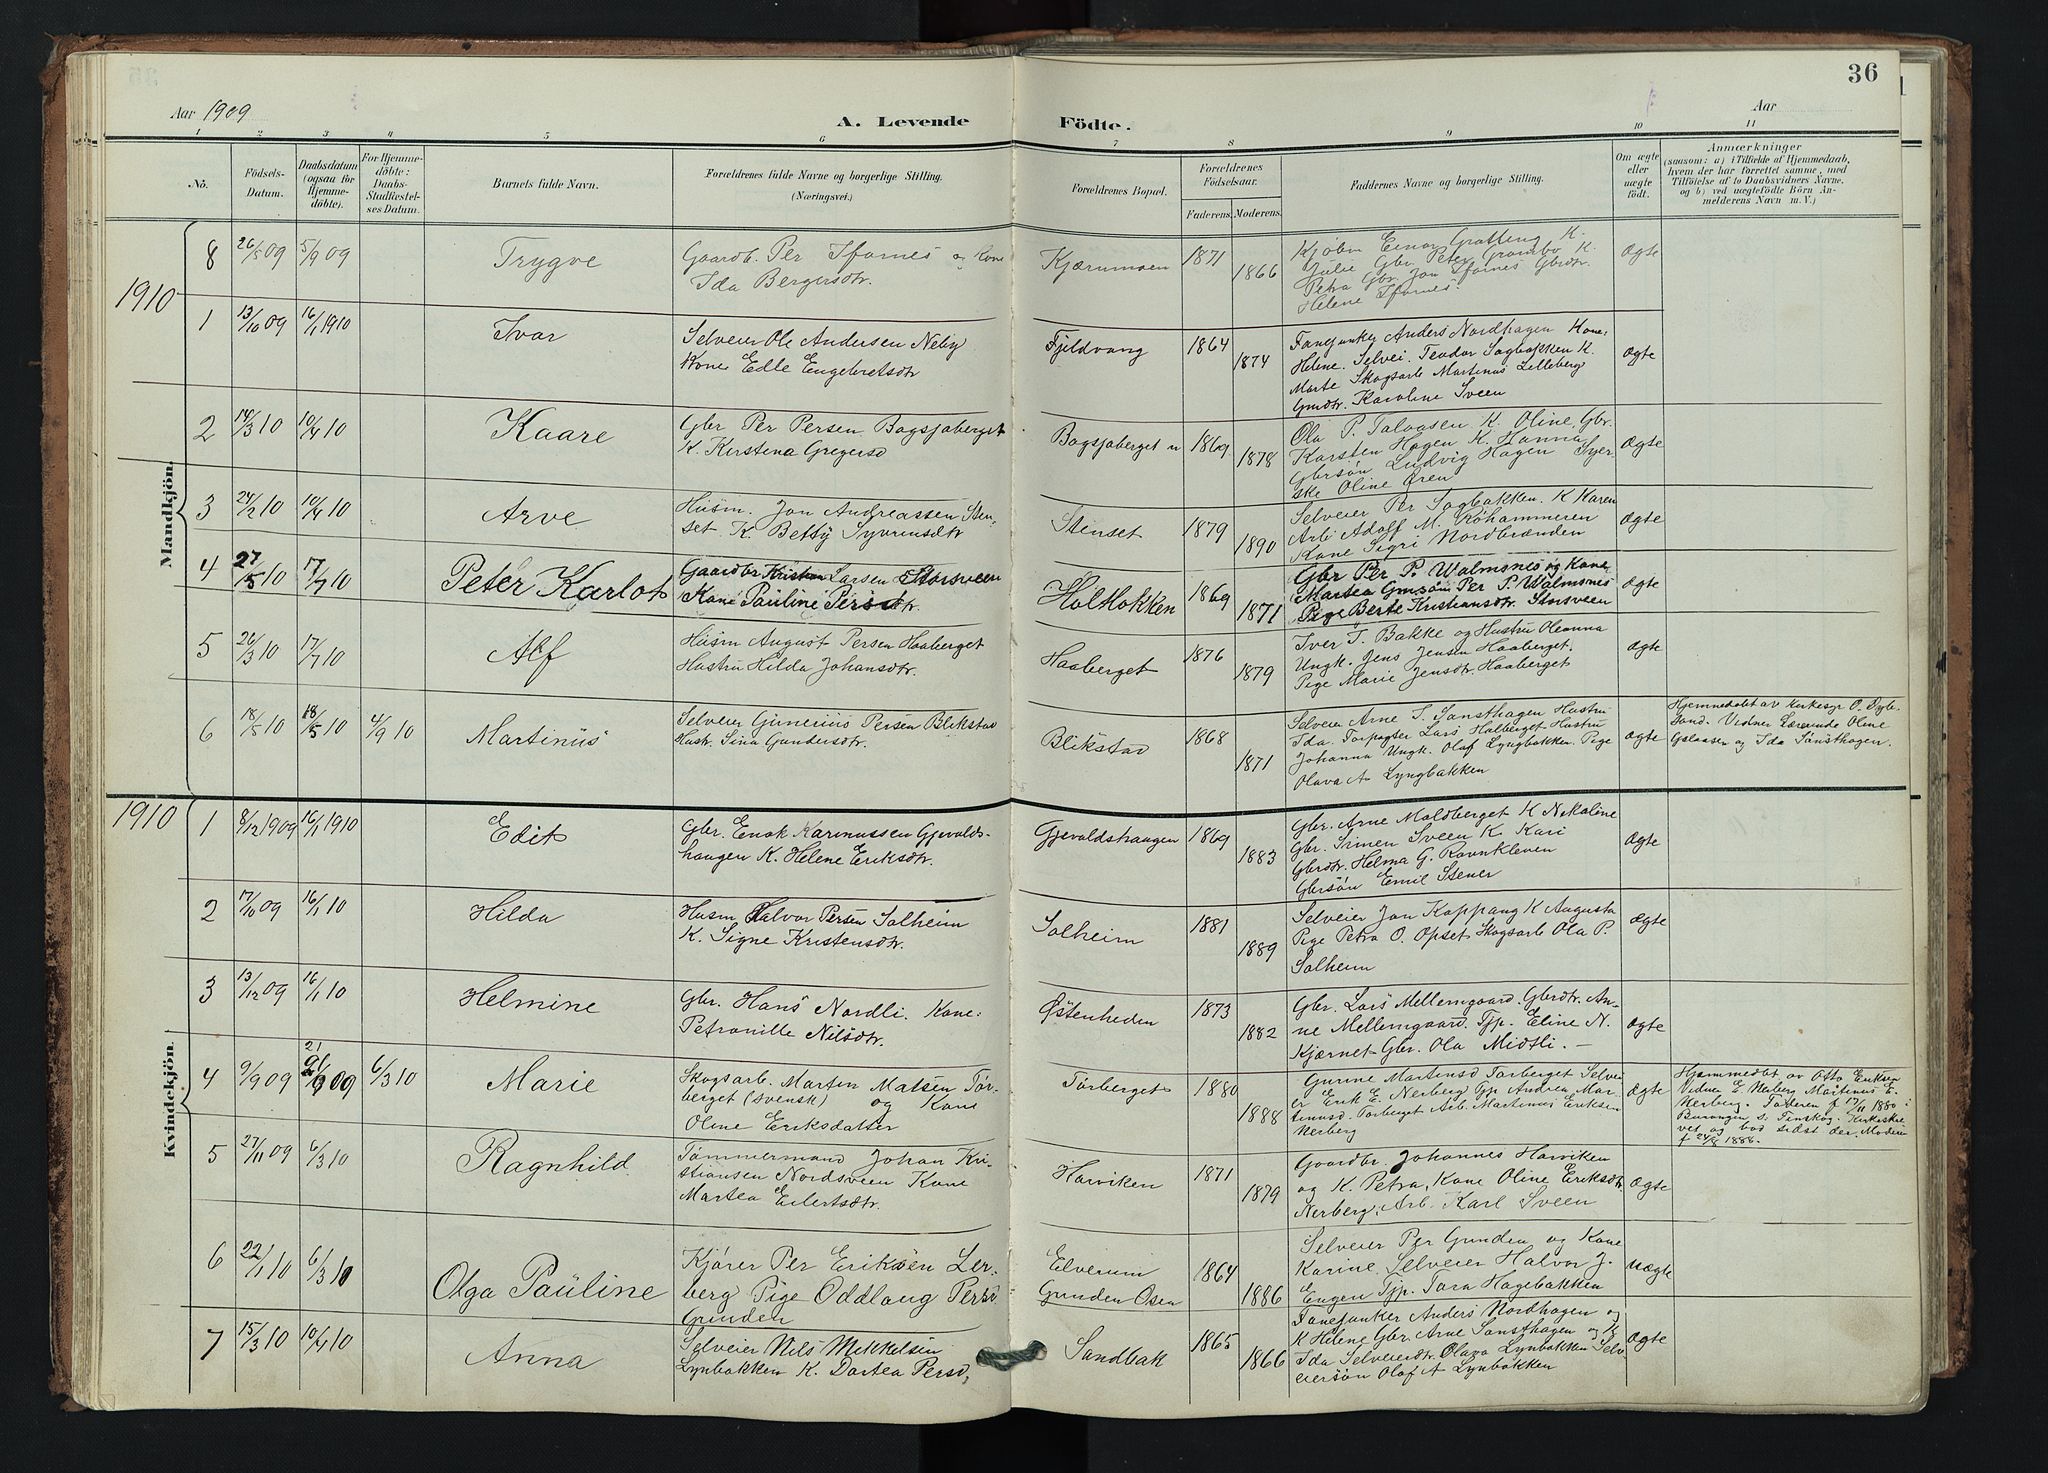 36
Aar 1909
A. Levende Födte.
Aar
1 2 3 4 5 6 7 8 9 10 11
No.
Födsels-Datum.
Daabsdatum (ogsaa for Hjemme-döbte).
For Hjemme-döbte: Daabs-Stadfæstelses Datum.
Barnets fulde Navn.
Forældrenes fulde Navne og borgerlige Stilling. (Næringsvei.)
Forældrenes Bopæl.
Forældrenes Födselsaar.
Faderens. Moderens.
Faddernes Navne og borgerlige Stilling.
Om ægte eller uægte födt.
Anmærkninger
(saasom: a) i Tilfælde af Hjemmedaab, hvem der har forrettet samme, med Tilföielse af to Daabsvidners Navne, og b) ved uægtefödte Börn Anmelderens Navn m. V.)
Mandkjön.
8 26/5 09 5/9 09 Trygve
Gaardb. Per og Kone
Ida Bergersdtr.
Kjærnmoen 1871 1866
Kjøbm Einar Grøtting K.
Julie Gbr Peter K.
Petra Gbr Jon Gbrdtr.
Helene
Ægte
1910
1 13/10 09 16/1 1910 Ivar
Selveier Ole Andersen Neby
Kone Edle Engebretsdtr
Fjeldvang 1864 1874
Fanejunker Anders Nordhagen Kone:
Helene. Selvei. Teodor Sagbakken K.
Marte Skogsarb Martinus Lilleberg
Gmdtr. Karoline Sveen
Ægte
2 14/3 10 10/4 10 Kaare
Gbr Per Persen Bagsjøberget
K. Kirstena Gregersd
Bagsjøberget n 1869 1878
Ola P. K. Oline Gbr.
Karsten Hagen K. Hanna
Gbrsøn Ludvig Hagen Syer
ske Oline Øren
Ægte
3 24/2 10 10/4 10 Arve
Husm. Jon Andreassen Sten-
set K. Betty Syversdtr
Stenset 1879 1890
Selveier Per Sagbakken. K Karen
Arb Adolf M. Kohammeren
Kone Sigri Nordbrænden
Ægte
4 27/5 10 17/7 10 Peter Karlot
Gaardbr Kristian Larsen Storsveen
Kone Pauline Persdtr.
Holtlokken 1869 1871
Gbr Per P. Walmsnes og Kone
Martea Gmsøn Per P. Walmsnes
Pige Berte Kristiansdtr. Storsveen
Ægte
5 26/3 10 17/7 10 Alf
Husm August Persen Haaberget
Hustru Hilda Johansdtr.
Haaberget 1876 1879
Iver T. Bakke og Hustru Oleanna
Ungk. Jens Jensen Haaberget.
Pige Marie Jensdtr. Haaberget
Ægte
6 18/5 10 18/5 10 4/9 10 Martinus
Selveier Gunerius Persen Blikstad
Hustr. Sina Gundersdtr.
Blikstad 1868 1871
Selveier Arne S. Sønsthagen Hustru
Ida. Forpagter Lars Halberget Hustru
Johanna Ungk. Olaf Lyngbakken. Pige
Olava A Lyngbakken
Ægte
Hjemmedøbt av Kirkesgr O.
Vidner Lærerinde Oline
og Ida Sønsthagen.
1910
Kvindekjön.
1 8/12 1909 16/1 1910 Edit
Gbr. Enok Karinussen Gjevalds-
haugen K. Helene Eriksdtr.
Gjevaldshaugen 1869 1883
Gbr. Arne Moldberget K Nikoline
Gbr. Simen Sveen K. Kari
Gbrdtr. Helma G. Ravnkleven
Gbrsøn Emil Stener
Ægte
2 17/10 09 16/1 10 Hilda
Husm Halvor Persen Solheim
K. Signe Kristensdtr.
Solheim 1881 1889
Selveier Jon Koppang K Augusta
Pige Petra O. Opset Skogsarb Ola P.
Solheim
Ægte
3 13/12 09 16/1 10 Helmine
Gbr. Hans Nordli. Kone:
Petronille Nilsdtr.
Østenheden 1873 1882
Gbr. Lars Mellemgaard. Gbrdtr. An-
ne Mellemgaard. Tjp. Eline N.
Kjærnet Gbr. Ola Midtli. —
Ægte
4 9/9 09 21/9 09 6/3 10 Marie
Skogsarb. Martin Matsen Tør-
berget (svensk) og Kone
Oline Eriksdatter
Tørberget 1880 1888
Gurine Martinsd Tørberget Selvei
er Erik E. Nerberg Gp. Andrea Mar-
tinusd. Tørberget Arb. Martinus Eriksen
Nerberg
Ægte
Hjemmedøbt av Otto Eriksen
Vidner E Nerberg Martinus E.
Nerberg. Faderen f 17/11 1880 i
s. Finskog. Kirkeskre
vet og bod sidst der. Moderen
f 24/8 1888.
5 27/11 09 6/3 10 Ragnhild
Tømmermand Johan Kri-
stiansen Nordsveen Kone
Martea Eilertsdtr.
Harviken 1871 1879
Gaardbr. Johannes Harviken
og K. Petra, Kone Oline Eriksdtr.
Nerberg, Arb. Karl Sveen
Ægte
6 22/1 10 6/3 10 Olga Pauline
Kjører Per Eriksen Ler-
berg Pige Oddlaug Persd.
Grunden
Elverum
Grunden Osen 1864 1886
Selveier Per Grunden og Kone
Karine. Selveier Halvor J.
Engen Tjp. Tora Hagebakken
Uægte
7 15/3 10 10/4 10 Anna
Selveier Nils Mikkelsen
Lynbakken K. Dortea Persd,
Sandbak 1865 1866
Fanejunker Anders Nordhagen og
K Helene Gbr. Arne Sønsthagen og K
Ida Selveierdtr. Olava Lynbakken Selv
eiersøn Olaf A Lynbakken
Ægte